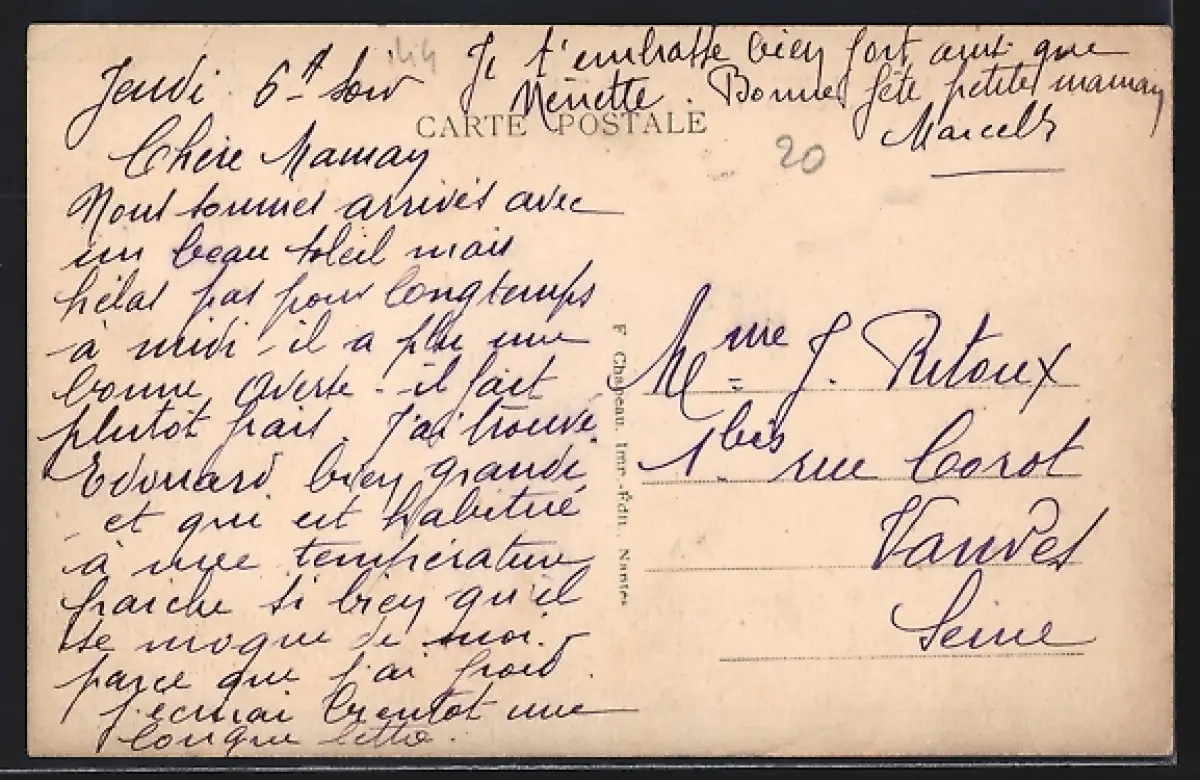 Jeudi 6 soir
Chère Maman
Nous sommes arrivés avec
un beau soleil mais
hélas pas pour longtemps
à midi - il a plu une
bonne averse - il fait
plutôt frais. J'ai trouvé
Edouard bien grandi
et qui est habitué
à une température
fraiche si bien qu'il
se moque de moi.
parce que j'ai froid.
J'écrirai bientôt une
longue lettre.
44
Je t'embrasse bien fort ainsi que
Nénette. Bonne fête petite maman
Marcelle
CARTE POSTALE
20
F. Chapeau. Imp.-Édit. Nantes
Mme J. Ritoux
1 bis rue Corot
Vanves
Seine